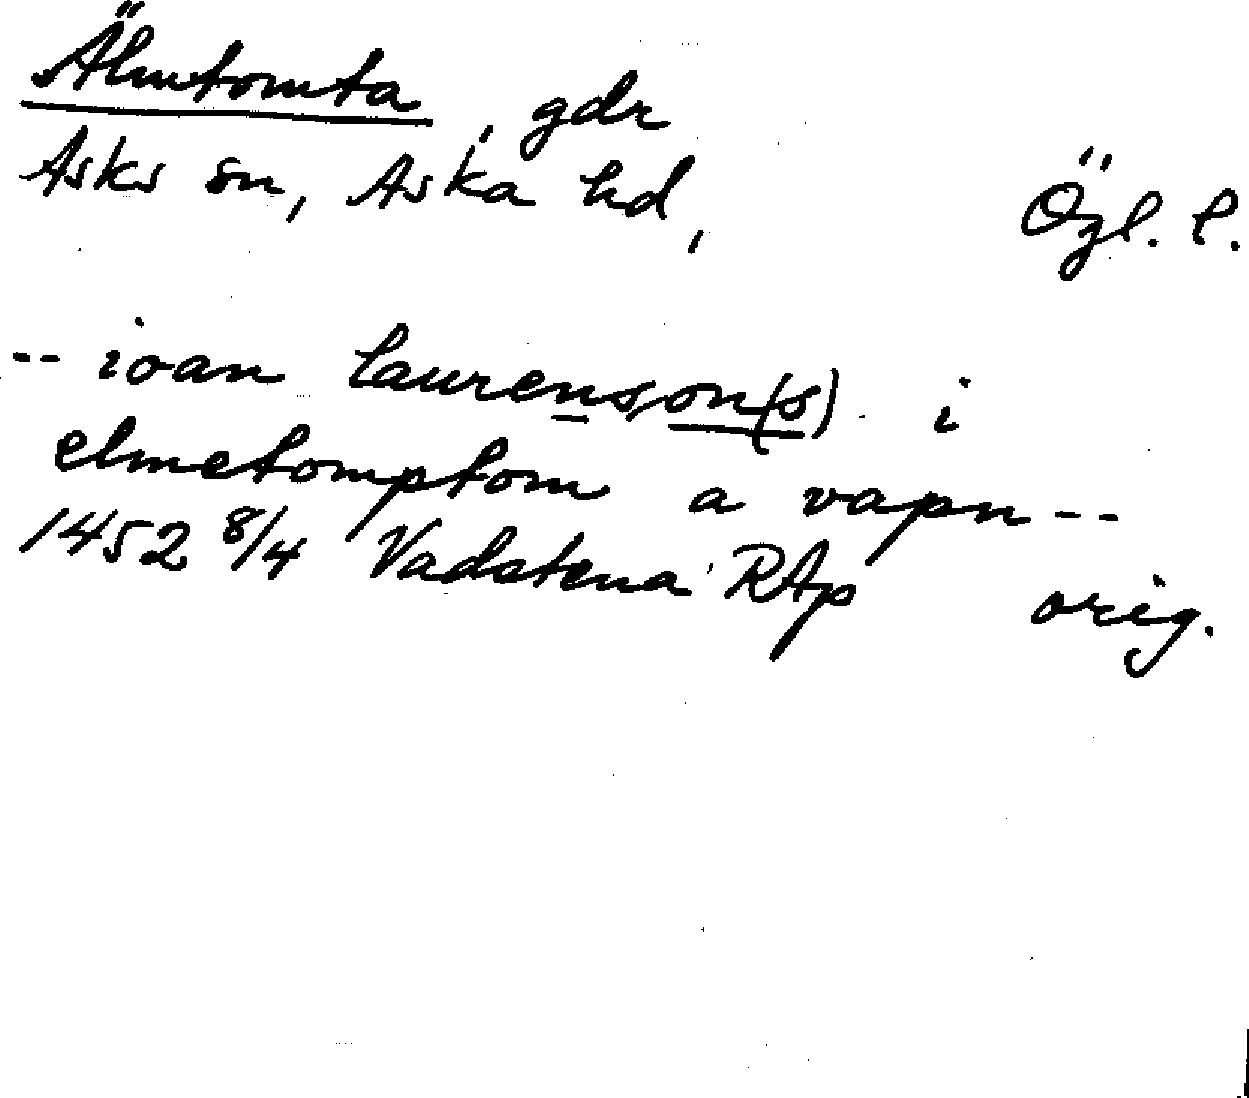 Älmtomta, gdr
Asks sn, Aska hd, Ögl. l.
-- ioan laurensson(s) i
elmetomptom a vapn --
1452 8/4 Vadstena RAp orig.